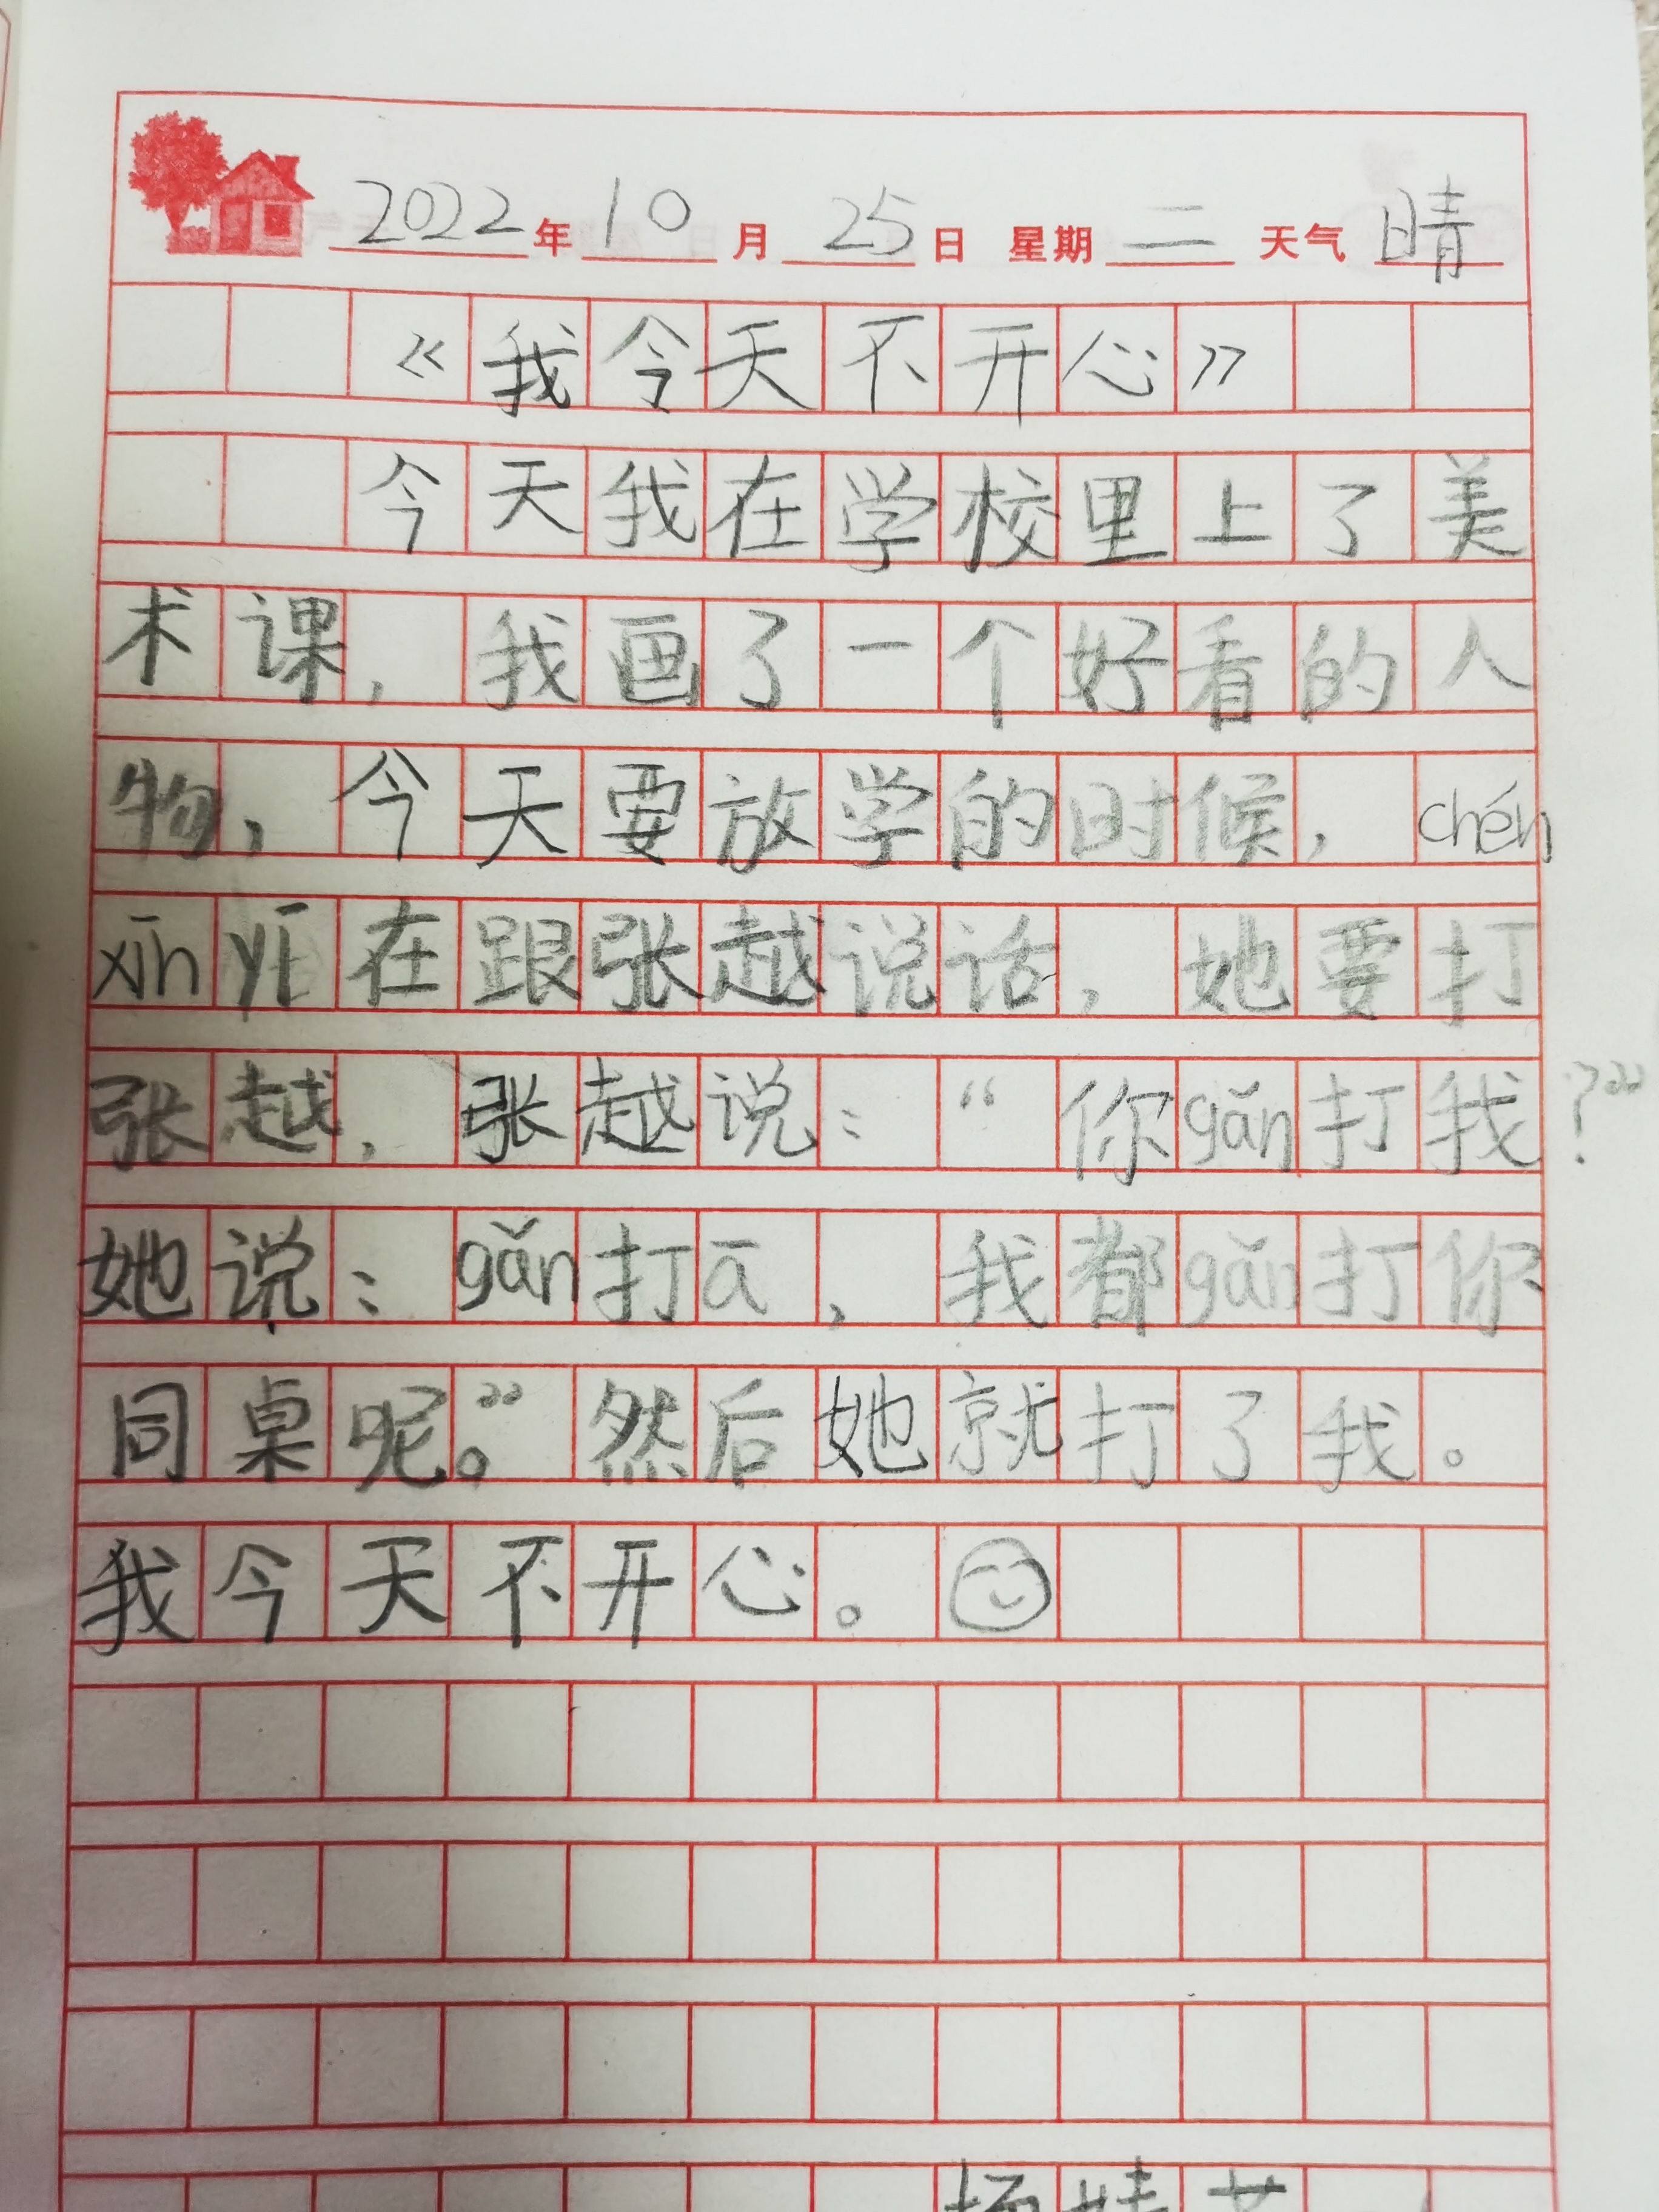 2022年10月25日 星期二 天气晴
《我今天不开心》
今天我在学校里上了美
术课，我画了一个好看的人
物，今天要放学的时候，chén
xīn yī在跟张越说话，她要打
张越，张越说：“你gǎn打我？”
她说：gǎn打ā，我都gǎn打你
同桌呢。”然后她就打了我。
我今天不开心。